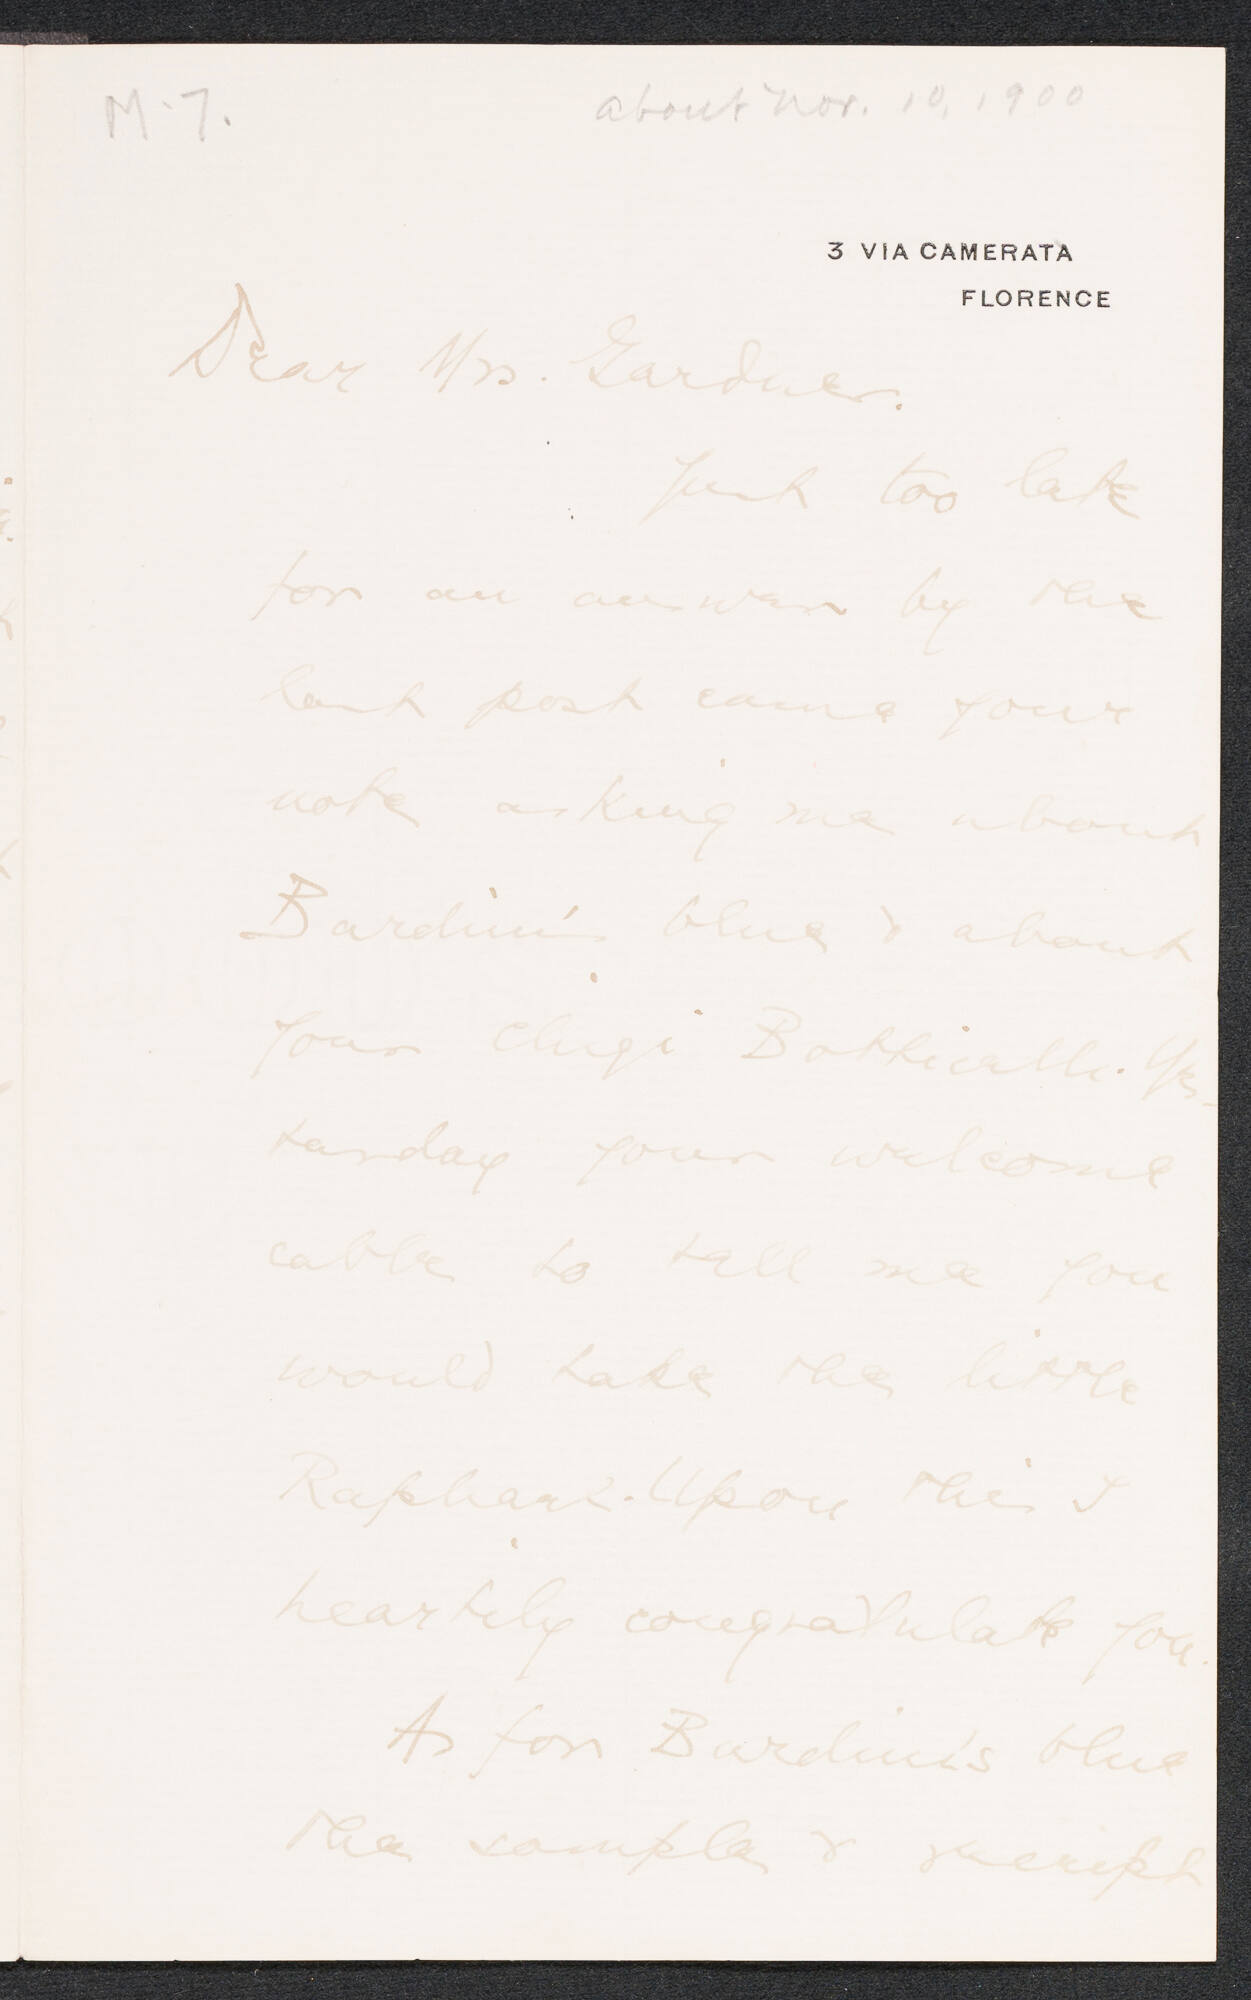 M.7.
about Nov. 10, 1900
3 VIA CAMERATA
FLORENCE
Dear Mrs. Gardner.
Just too late
for an answer by the
last post came your
note asking me about
Bardini's blue & about
your Chigi Botticelli. Yes-
terday your welcome
cable to tell me you
would take the little
Raphael. Upon this I
heartily congratulate you.
As for Bardini's blue
the sample & receipt